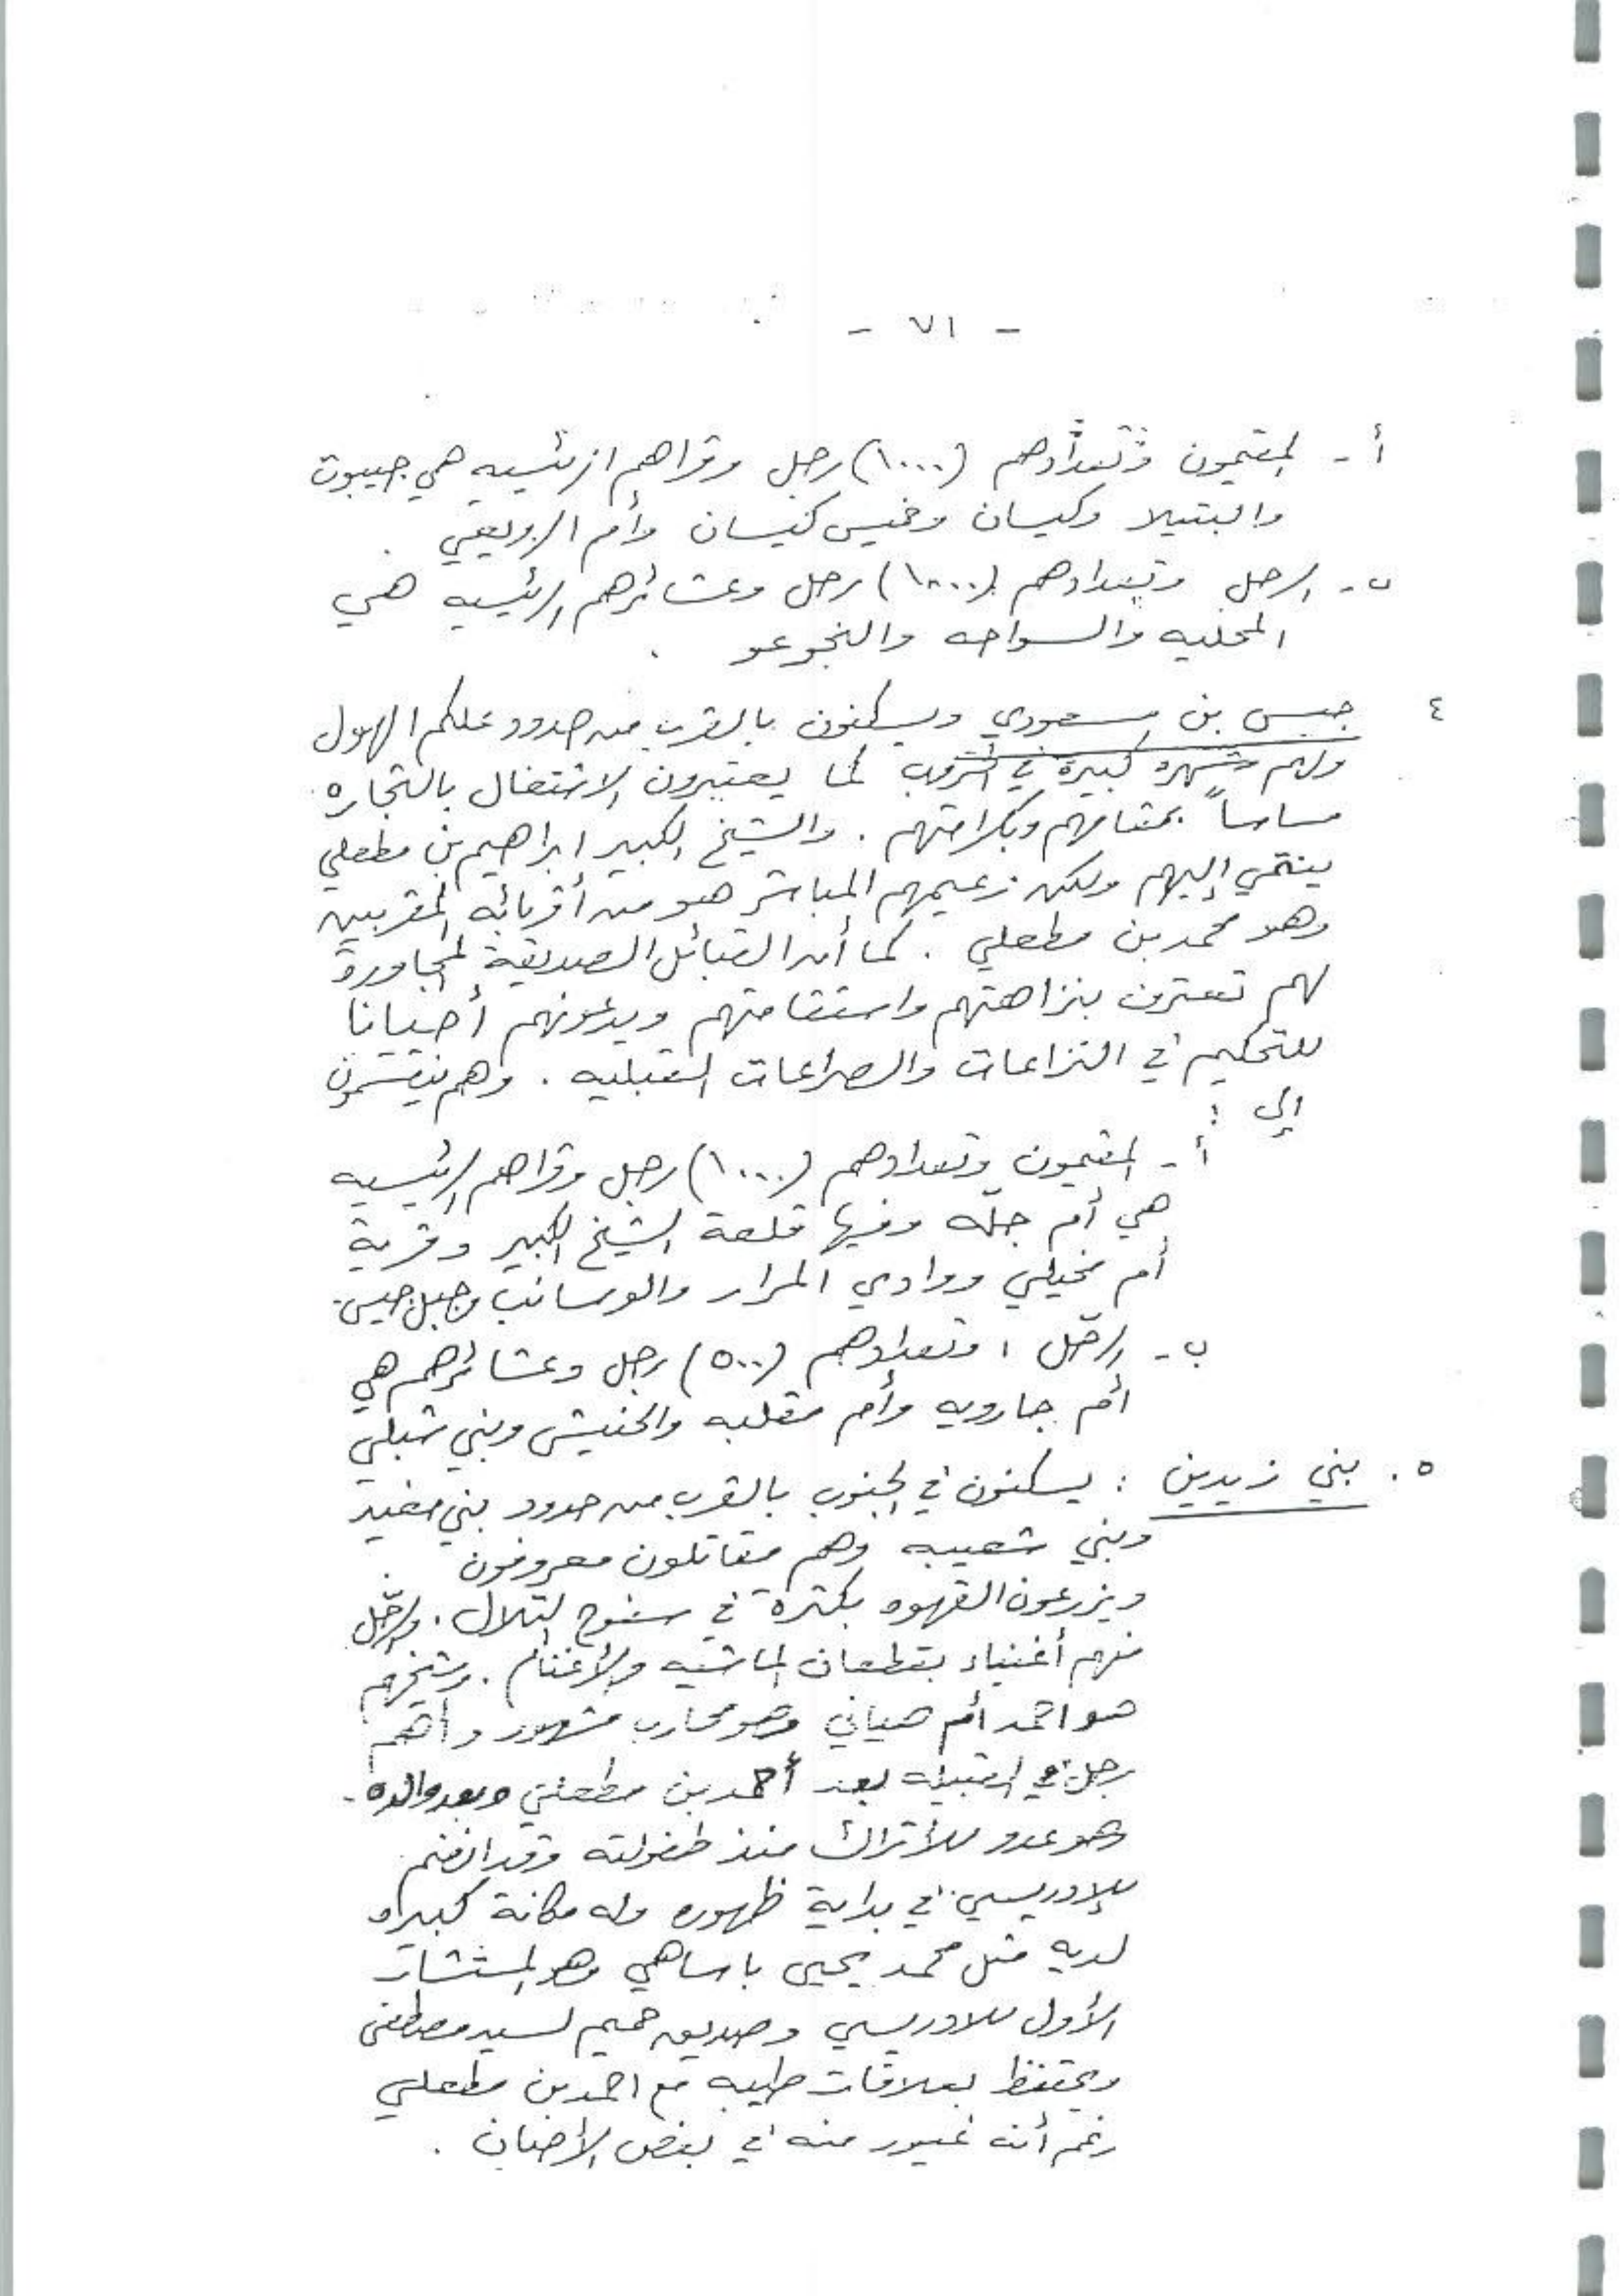 - ٧١ -
أ - المقيمون وتعدادهم (١٠٠٠) رجل وقراهم الرئسيه هي جيبوت
والبتيلا وكيسان وخميس كنيسان وأم الرويعي .
ب - الرحل وتعدادهم (١٠٠٠) رجل وعشائرهم الرئيسيه هي
المحليه والسواحه والنجوعو .
٤ جبس بن مسعودي ويسكنون بالقرب من حدود علكم الهول
ولهم شهره كبيرة في الحروب كما يعتبرون الاشتغال بالتجاره
مساساً بمقامهم وبكرامتهم . والشيخ الكبير ابراهيم بن مطعلي
ينتمي إليهم ولكن زعيمهم المباشر هو من أقربائه المقربين
وهو محمد بن مطعلي . كما أن القبائل الصديقة المجاورة
لهم تعترف بنزاهتهم واستقامتهم ويدعونهم أحيانا
للتحكيم في النزاعات والصراعات القبليه . وهم ينقسمون
إلى :
أ - المقيمون وتعدادهم (١٠٠٠) رجل وقراهم الرئيسيه
هي أم جلّه وفيها قلعة الشيخ الكبير وقرية
أم نخيلي ووادي المرار والوسانب وجبل جبس.
ب - الرحّل ، وتعدادهم (٥٠٠) رجل وعشائرهم هي
أم جارويه وأم مقلبه والحنيش وبني شبلي
٥ . بني زيدين : يسكنون في الجنوب بالقرب من حدود بني مغيد
وبني شعيبه وهم مقاتلون معروفون
ويزرعون القهوه بكثرة في سفوح التلال . والرحّل
منهم أغنياء بقطعان الماشيه والأغنام . وشيخهم
هو احمد أم حياني وهو محارب مشهور وأهم
رجل في القبيله بعد أحمد بن مطعلي وبعد والده .
وهو عدو للأتراك منذ طفولته وقد انضم
للإدريسي في بداية ظهوره وله مكانة كبيره
لديه مثل محمد يحيى باساهي وهو المستشار
الأول للادريسي وصديق حميم لسيد مصطفى
ويحتفظ بعلاقات طيبه مع احمد بن مطعلي
رغم أنه غيور منه في بعض الأحيان .